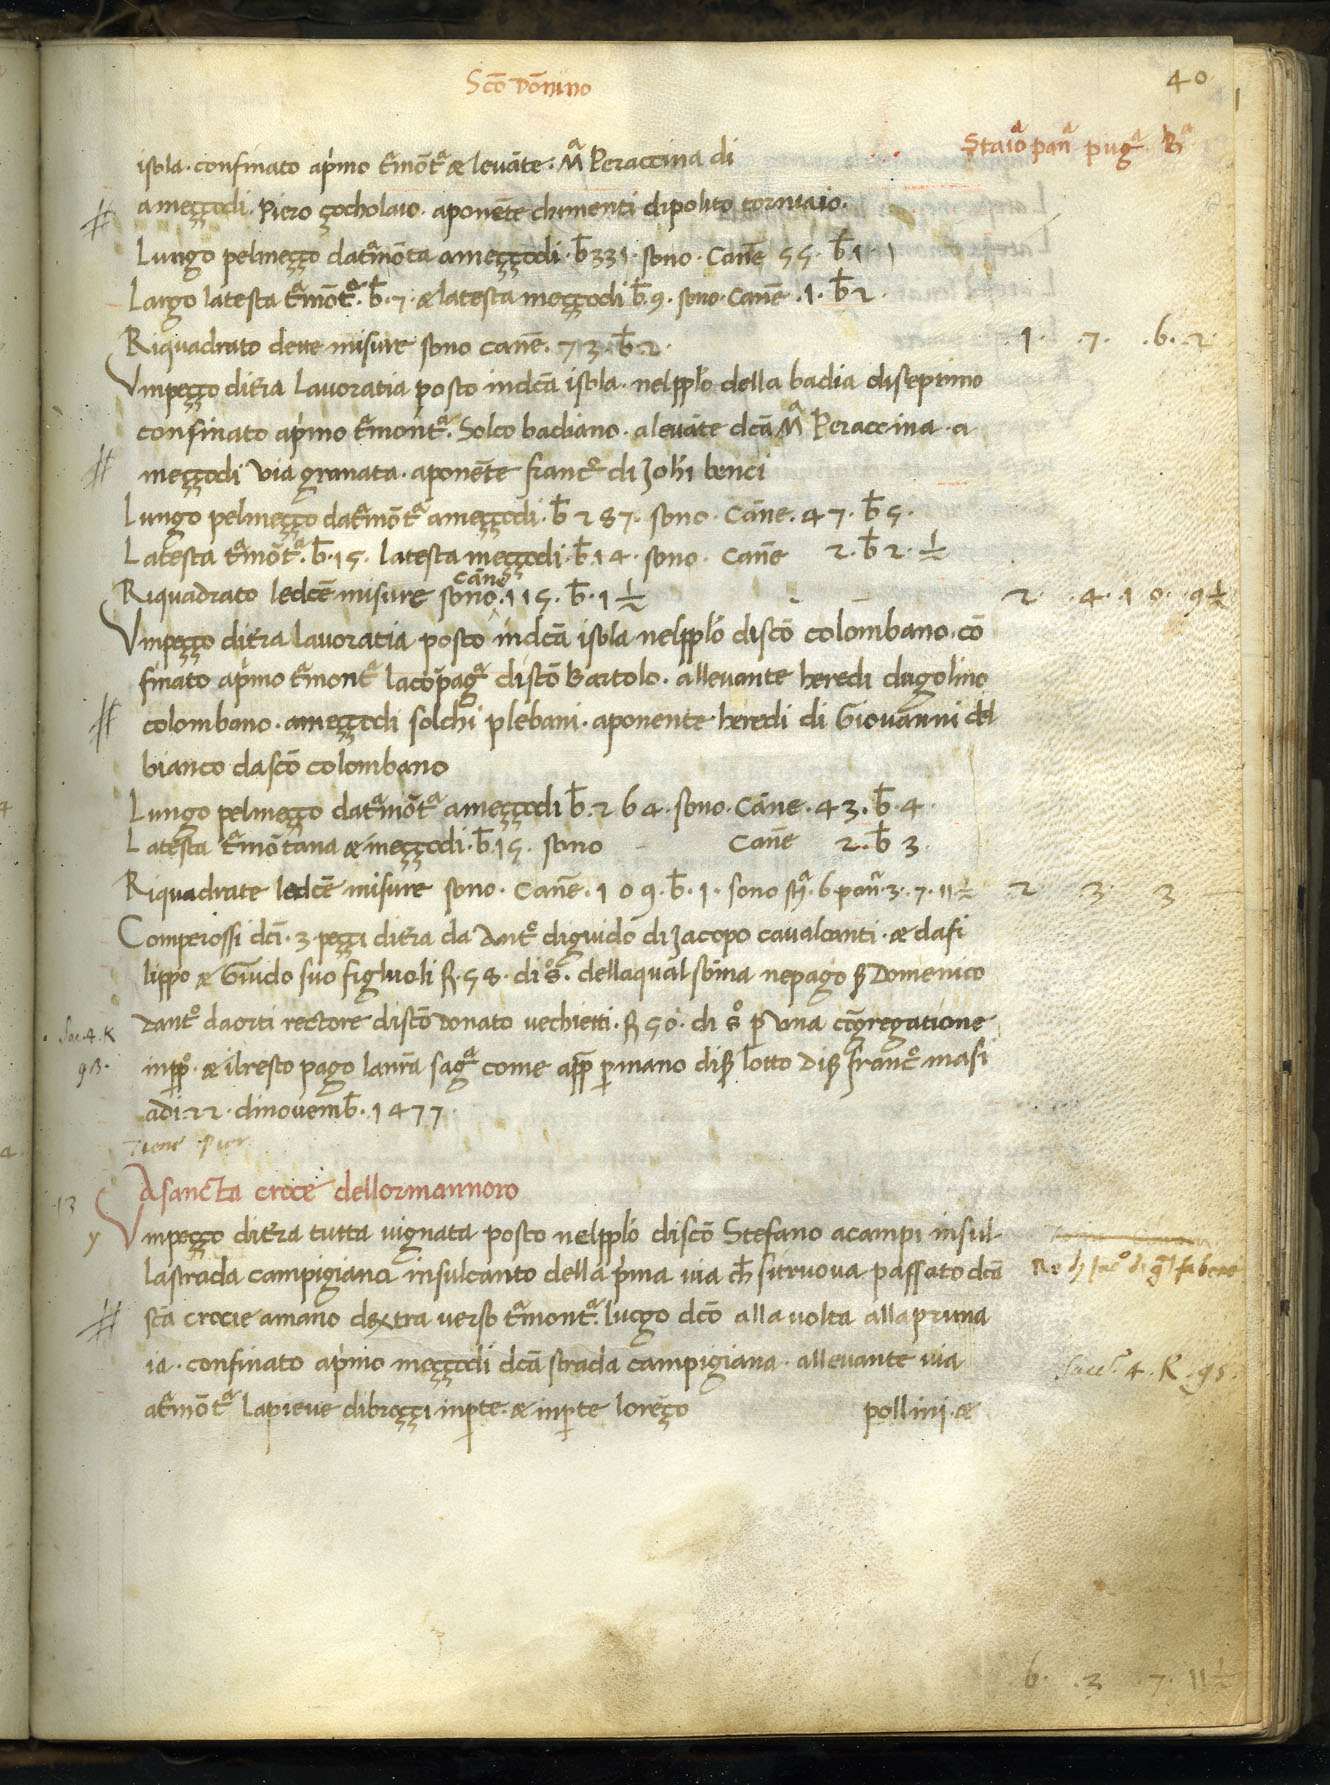 Scō Dōnino
40
Staioᵃ panᵃ pugᵃ Bᵃ
isola · confinato ap̄imo t̄monᵗᵃ æ levāte · Mᵃ Peraccina di
ameççodi · Piero çocholaio · aponēte chimenti dipolito torniaio ·
Lungo pelmeçço dat̄mōtᵃ ameççodi · b̄ 331 · sono · Canē 55 · b̄ 1 ·
Largo latesta t̄mōtᵃ · b̄ · 7 · æ latesta meççodi b̄ · 9 · sono · Canē · 1 · b̄ 2 ·
Riquadrato dette misure sono canē · 73 · b̄ · 2 · 1 · 7 · 6 · 2
Vnpeçço dit̄ra Lavoratia posto indc̄ā isola · nelpplō della badia diseptimo
confinato ap̄imo t̄montᵃ · Solco badiano · alevāte dc̄ā Mᵃ Peraccina · a
meççodi via granata · aponēte francᵒ di Johī benci
Lungo pelmeçço dat̄mōtᵃ ameççodi · b̄ 287 · sono · Cāne · 47 · b̄ 5 ·
Latesta t̄mōtᵃ · b̄ · 15 · latesta meççodi · b̄ · 14 · sono · Canē 2 · b̄ 2 · ½
Riquadrato ledcē misure sono canē · 115 · b̄ · 1 ½ 2 · 4 · 10 · 9½
Vnpeçço dit̄ra lavoratia posto indc̄ā isola nelpplō discō colombano · cō
finato ap̄imo t̄montᵃ lacōpagᵃ discō Bartolo · allevante heredi dugolino
colombano · ameççodi solchi plebani · aponente heredi di Giovanni del
bianco dascō colombano
Lungo pelmeçço dat̄mōtᵃ ameççodi b̄ · 264 · sono · Cāne · 43 · b̄ · 4 ·
Latesta t̄mōtana æ meççodi · b̄ · 15 · sono Canē 2 · b̄ 3 ·
Riquadrate ledcē misure sono · Canē · 109 · b̄ · 1 · sono stᵃ · 6 panᵃ · 3 · 7 · 11½ 2 3 · 3 —
Comperossi dcī · 3 · peççi dit̄ra da Antᵒ diguido di Jacopo cavalcanti · æ dafi
lippo æ Guido suo figluoli ƒ · 58 · di sᵒ · dellaqual sōma nepago ẞ Domenico
dantᵒ daorti rectore discō Donato vechietti · ƒ 50 · di sᵒ p̄ una cōgregatione
inpp̄ᵒ · æ ilresto pago lanr̄ā sagᵃ come app̄ p̄mano diẞ lotto diẞ francᵒ masi
adi · 22 · dinovemb̄ · 1477 ·
Sac. 4. K
93 ·
Tiene Pier
A sancta croce dellormannoro
13
y
Vnpeçço dit̄ra tutta vignata posto nelpplō discō Stefano acampi insul-
lastrada campigiana insulcanto della p̄ima via ch̄ sitruova passato dc̄ā
stā crocie amano dextra verso t̄montᵃ · luogo dcō alla volta allapruna
ia · confinato ap̄imo meççodi dc̄ā strada campigiana · allevante via
at̄mōtᵃ Lapieve dibroççi inp̄te · æ inp̄te lorēço pollini · æ
Sacc. 4 · K · 95 ·
6 · 3 · 7 · 11½